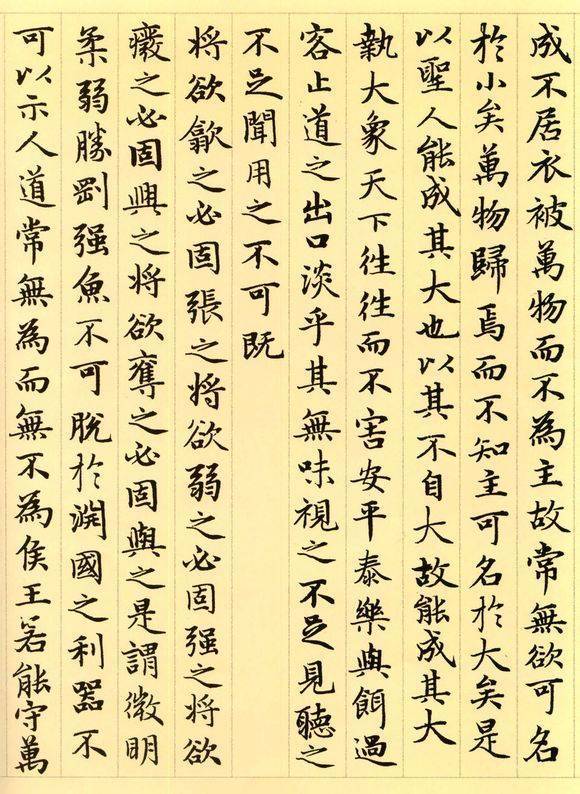 成不居衣被萬物而不為主故常無欲可名
於小矣萬物歸焉而不知主可名於大矣是
以聖人能成其大也以其不自大故能成其大
執大象天下往往而不害安平泰樂與餌過
客止道之出口淡乎其無味視之不足見聽之
不足聞用之不可既
将欲歙之必固張之将欲弱之必固强之将欲
癈之必固興之将欲奪之必固與之是謂微明
柔弱勝剛强魚不可脫於淵國之利器不
可以示人道常無為而無不為侯王若能守萬